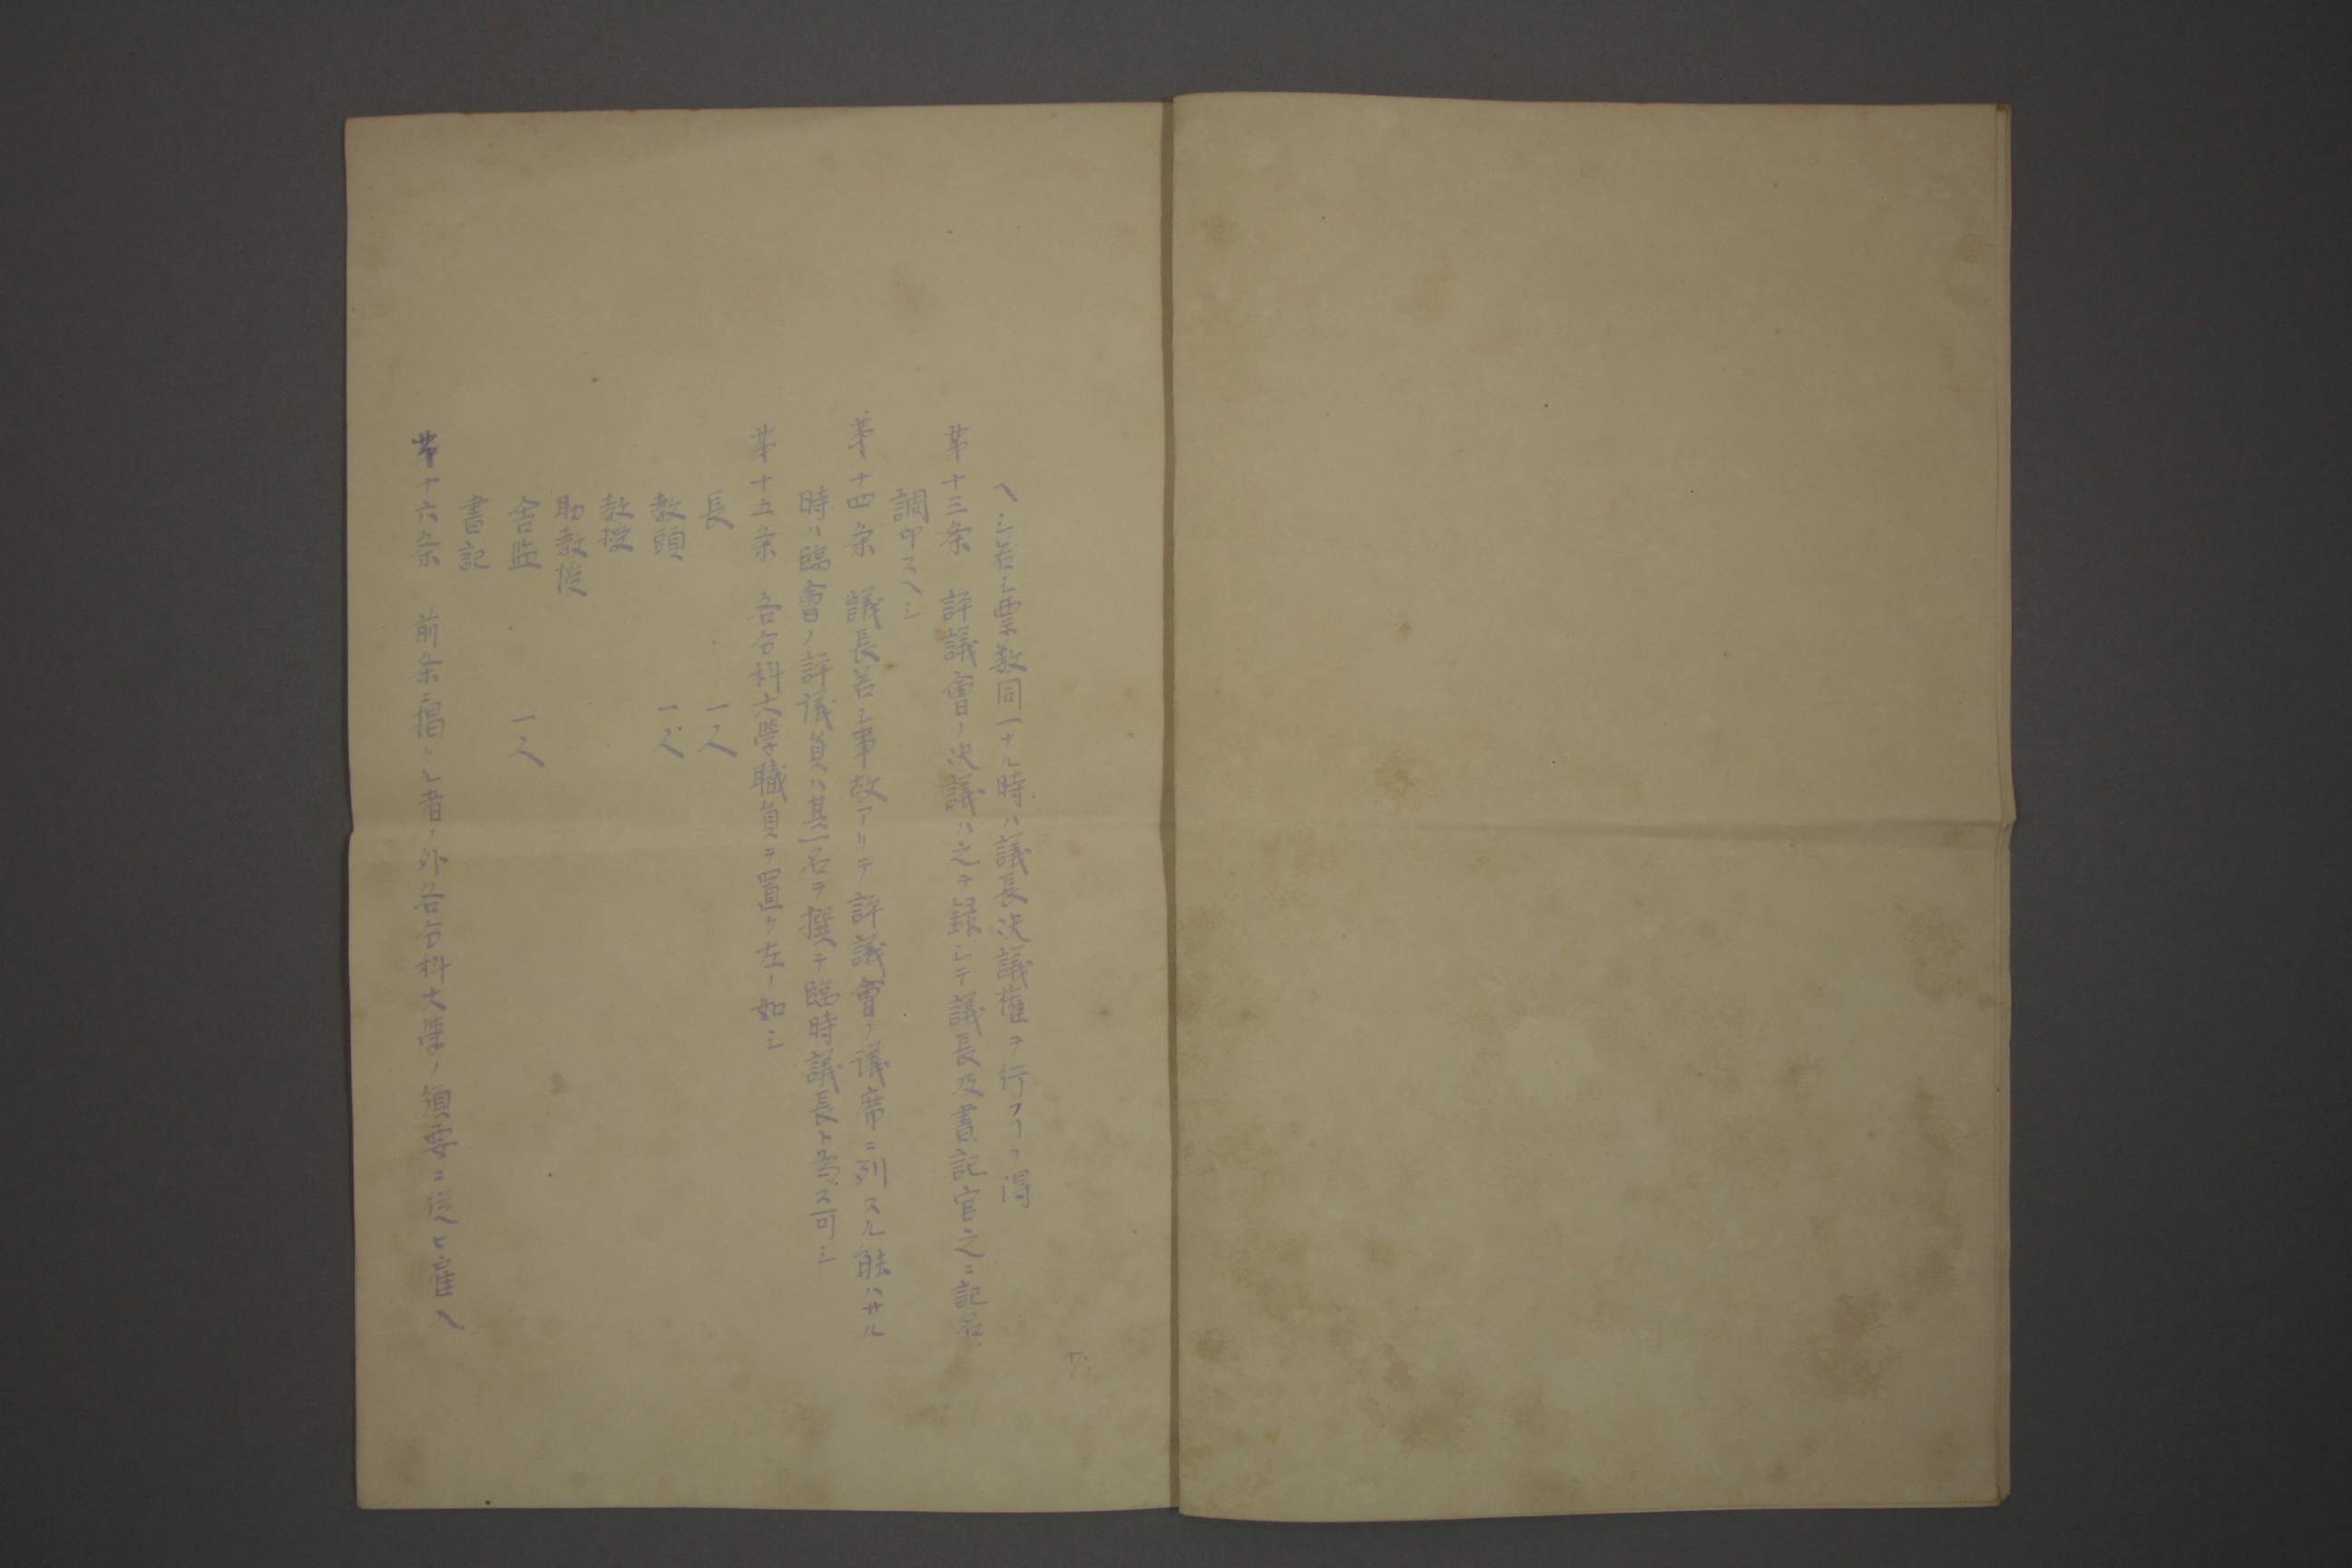 ヘシ若シ票数同一ナル時ハ議長決議権ヲ行フヿヲ得
第十三条　評議會ノ決議ハ之ヲ録シテ議長及書記官之ニ記名
調印スヘシ
第十四条　議長若シ事故アリテ評議會ノ議席ニ列スル能ハサル
時ハ臨會ノ評議員ハ其一名ヲ撰テ臨時議長ト為ス可シ
第十五条　各分科大學職員ヲ置ク左ノ如シ
長　一人
教頭　一人
教授
助教授
舍監　一人
書記
第十六条　前条ニ掲クル者ノ外各分科大學ノ須要ニ從ヒ雇入
7